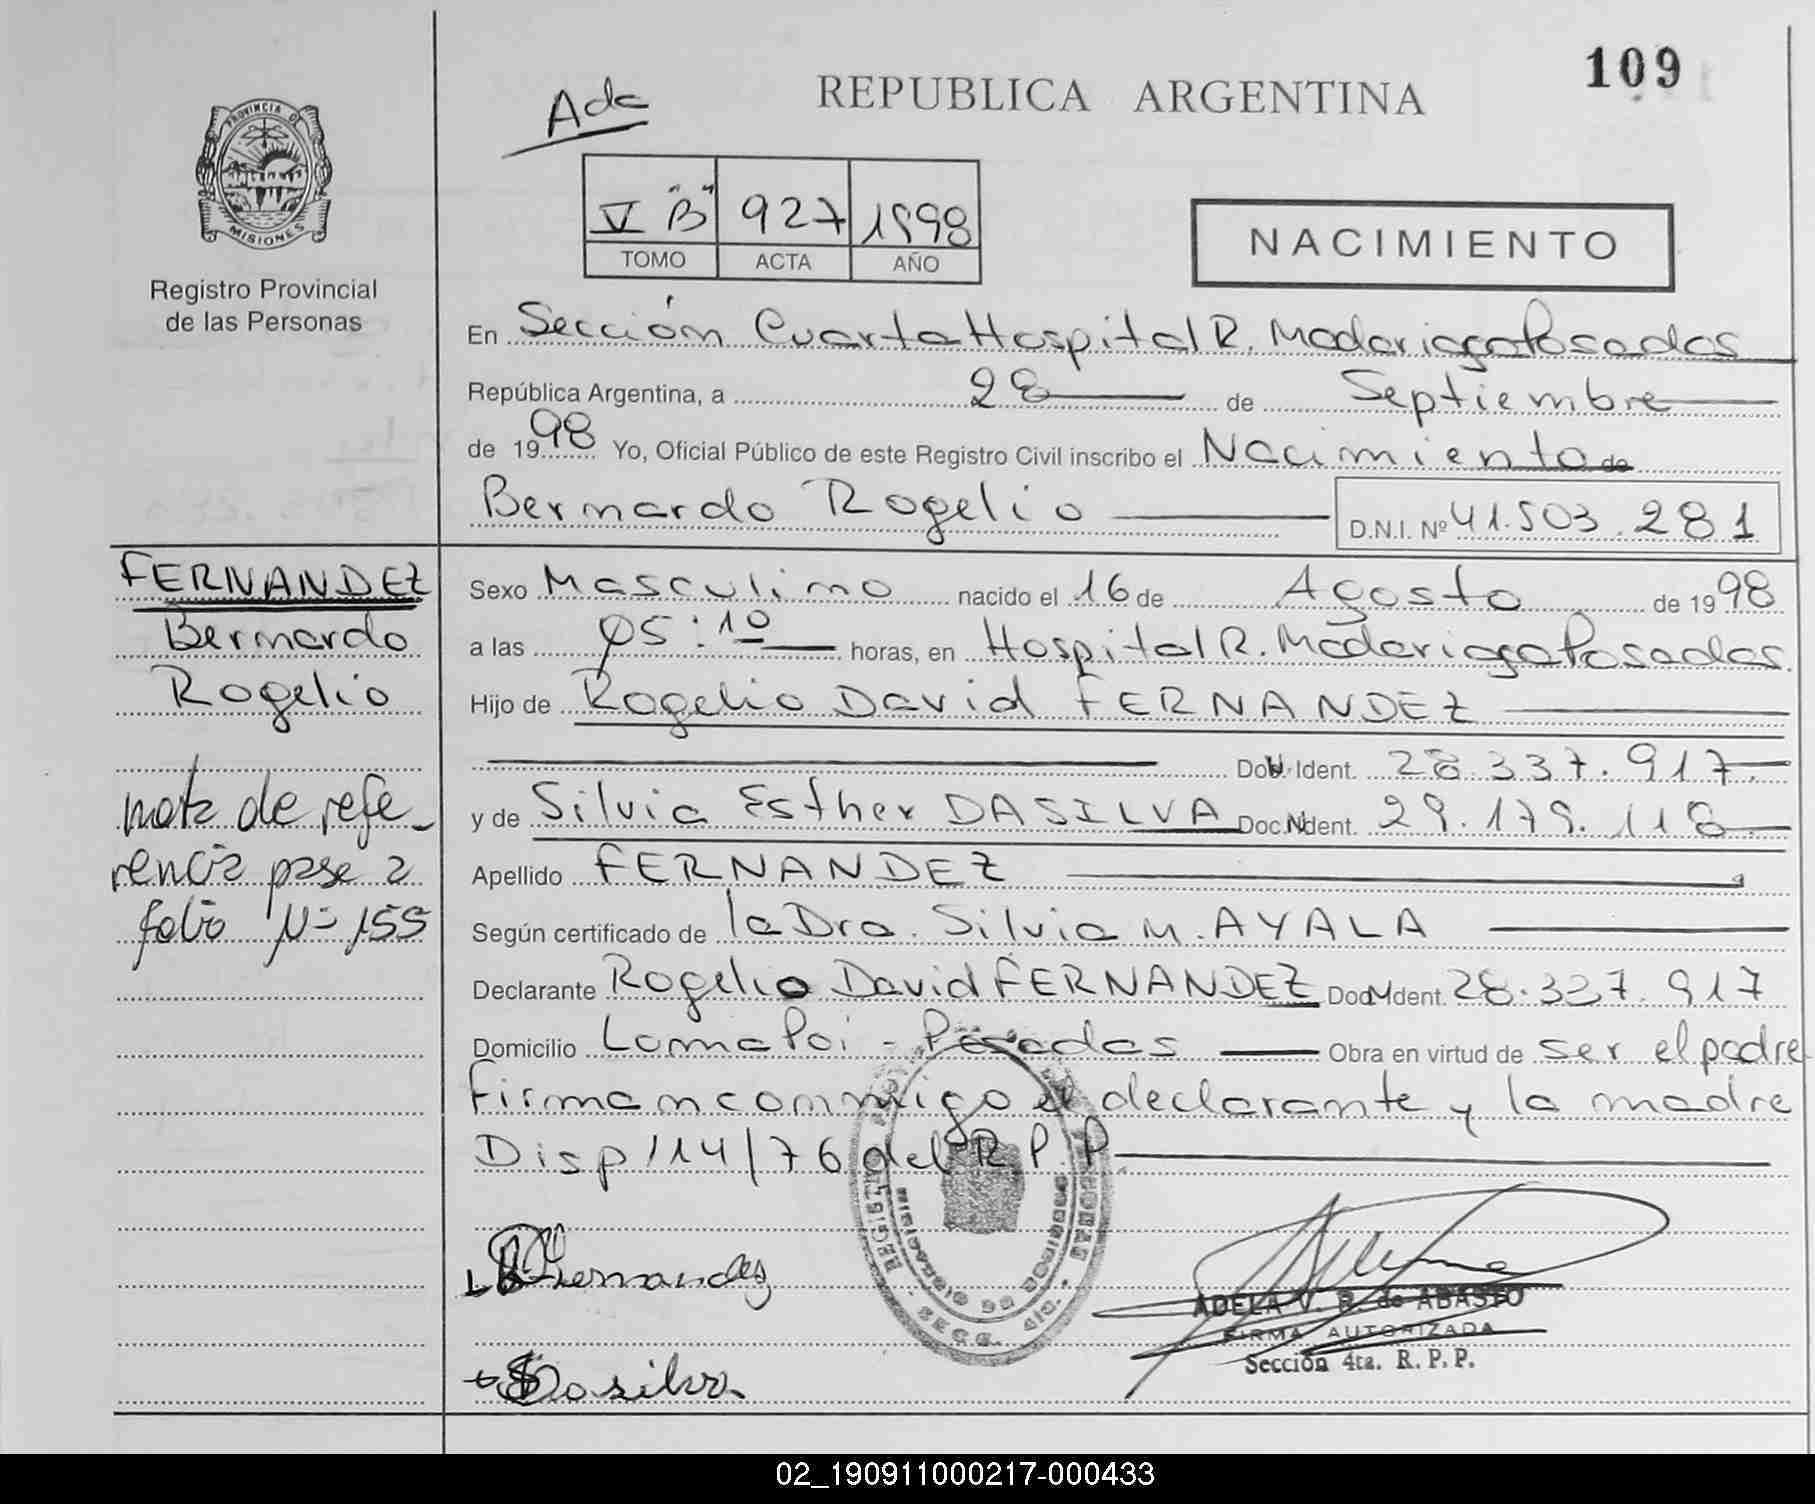 109
Ada
REPUBLICA ARGENTINA
PROVINCIA DE
MISIONES
Registro Provincial
de las Personas
V "B" 927 1998
TOMO ACTA AÑO
NACIMIENTO
En Sección Cuarta Hospital R. Madariaga Posadas
República Argentina, a 28 de Septiembre
de 1998 Yo, Oficial Público de este Registro Civil inscribo el Nacimiento de
Bernardo Rogelio D.N.I. Nº 41.503.281
FERNANDEZ
Bernardo
Rogelio
nota de refe-
rencia pase a
folio Nº 155
Sexo Masculino nacido el 16 de Agosto de 1998
a las 05:10 horas, en Hospital R. Madariaga Posadas.
Hijo de Rogelio David FERNANDEZ
Ident. 28.337.917.
y de Silvia Esther DASILVA Doc. Ident. 29.179.118
Apellido FERNANDEZ
Según certificado de la Dra. Silvia M. AYALA
Declarante Rogelio David FERNANDEZ Ident. 28.337.917
Domicilio Loma Poi - Posadas Obra en virtud de ser el padre
Firman conmigo el declarante y la madre
Disp 114/76 del R.P.P
Fernandez
Dasilva
ADELA V. R. de ABASTO
FIRMA AUTORIZADA
Sección 4ta. R. P. P.
02_190911000217-000433